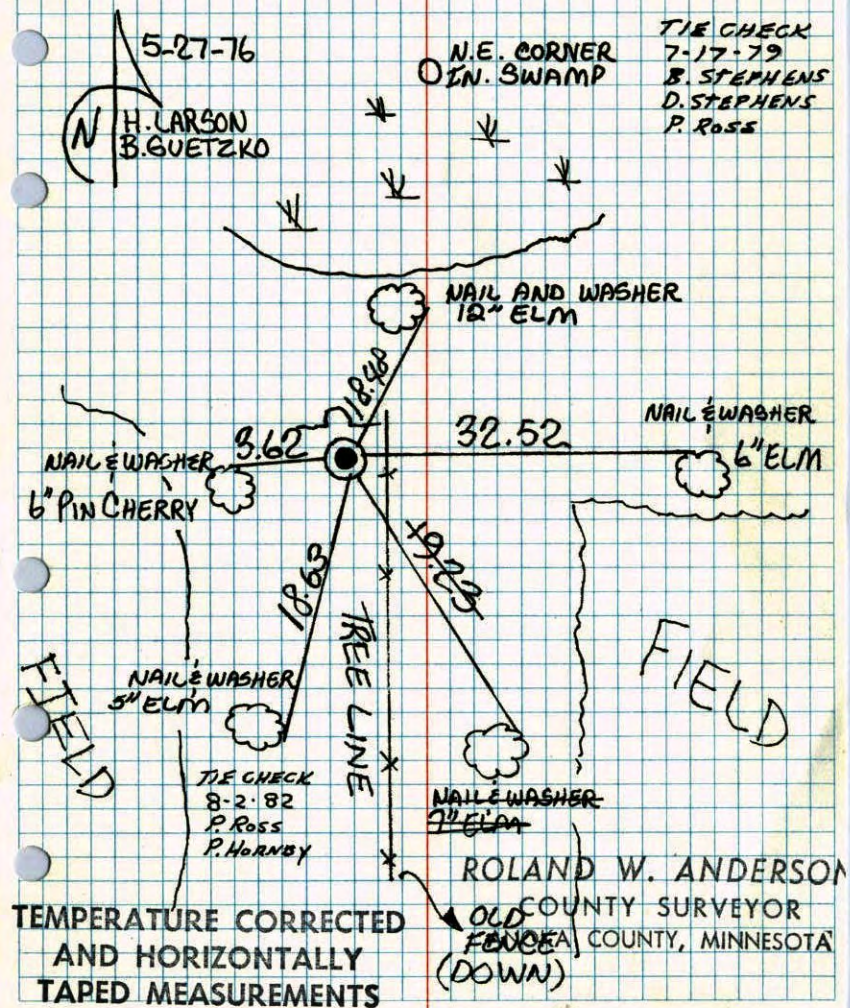 5-27-76
N
H. LARSON
B. GUETZKO
N.E. CORNER
IN. SWAMP
TIE CHECK
7-17-79
B. STEPHENS
D. STEPHENS
P. ROSS
NAIL AND WASHER
12" ELM
18.48
3.62
32.52
NAIL & WASHER
6" PIN CHERRY
NAIL & WASHER
6" ELM
18.63
19.23
TREE LINE
NAIL & WASHER
5" ELM
FIELD
FIELD
TIE CHECK
8-2-82
P. ROSS
P. HORNBY
NAIL & WASHER
7" ELM
ROLAND W. ANDERSON
COUNTY SURVEYOR
COUNTY, MINNESOTA
OLD
FENCE
(DOWN)
TEMPERATURE CORRECTED
AND HORIZONTALLY
TAPED MEASUREMENTS